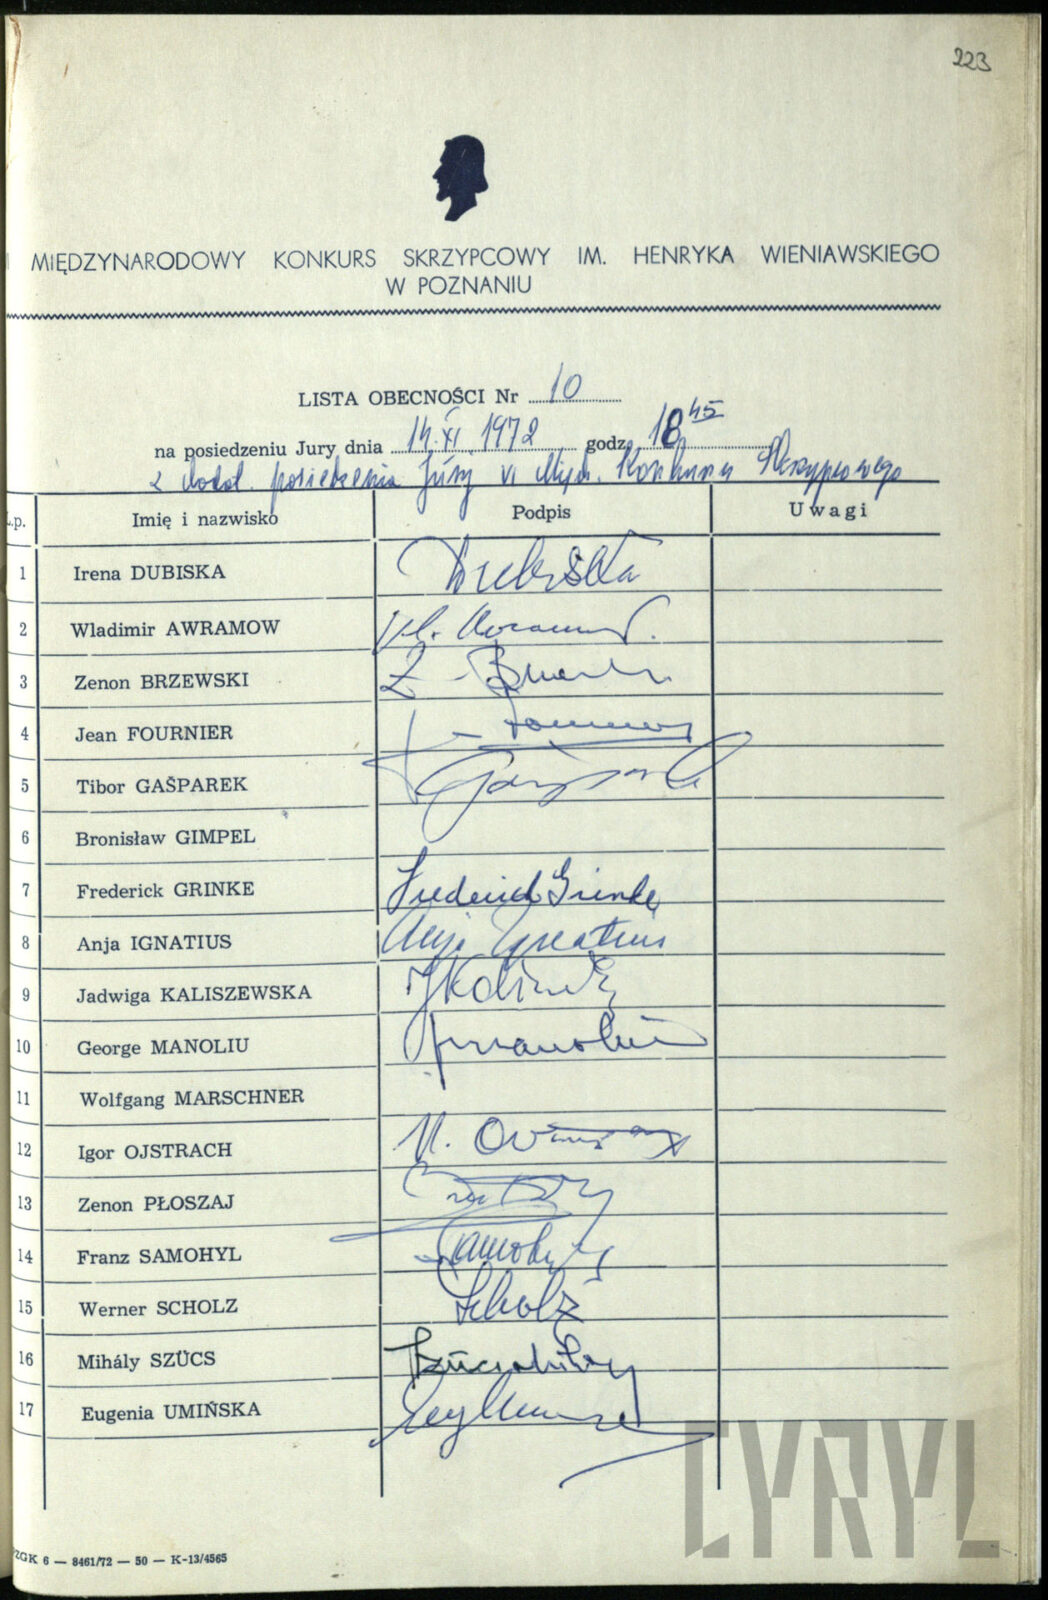 223
MIĘDZYNARODOWY KONKURS SKRZYPCOWY IM. HENRYKA WIENIAWSKIEGO
W POZNANIU
LISTA OBECNOŚCI Nr 10
na posiedzeniu Jury dnia 14.XI.1972 godz. 18 45
z posiedzenia Jury VI Międ. Konkursu Skrzypcowego
L.p. Imię i nazwisko Podpis Uwagi
1 Irena DUBISKA Dubiska
2 Wladimir AWRAMOW
3 Zenon BRZEWSKI
4 Jean FOURNIER
5 Tibor GAŠPAREK
6 Bronisław GIMPEL
7 Frederick GRINKE Frederick Grinke
8 Anja IGNATIUS Anja Ignatius
9 Jadwiga KALISZEWSKA
10 George MANOLIU
11 Wolfgang MARSCHNER
12 Igor OJSTRACH
13 Zenon PŁOSZAJ
14 Franz SAMOHYL
15 Werner SCHOLZ Scholz
16 Mihály SZÜCS
17 Eugenia UMIŃSKA
ZGK 6 — 8461/72 — 50 — K-13/4565
CYRYL